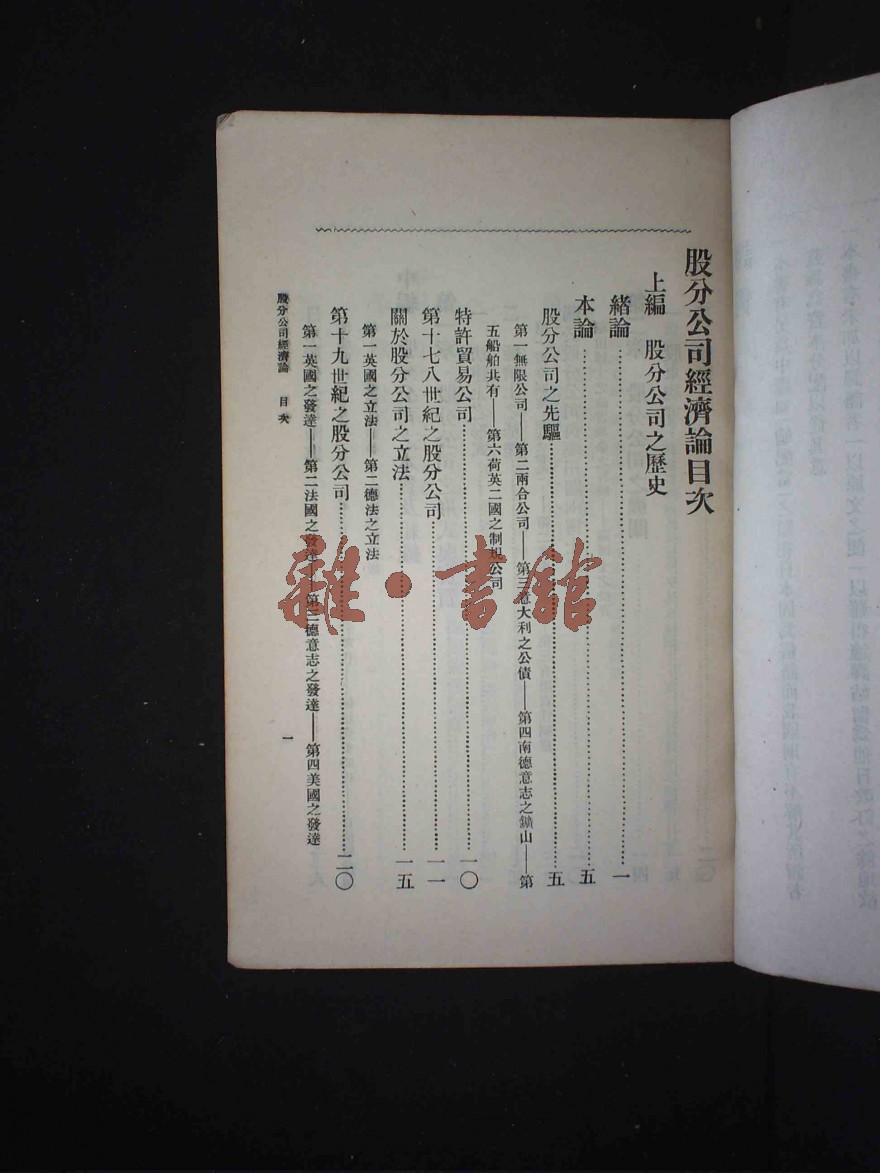 股分公司經濟論目次
上編　股分公司之歷史
緒論…………一
本論…………五
股分公司之先驅…………五
第一無限公司——第二兩合公司——第三意大利之公債——第四南德意志之鑛山——第
五船舶共有——第六荷英二國之制規公司
特許貿易公司…………一〇
第十七八世紀之股分公司…………一一
關於股分公司之立法…………一五
第一英國之立法——第二德法之立法
第十九世紀之股分公司…………二〇
第一英國之發達——第二法國之發達——第三德意志之發達——第四美國之發達
股分公司經濟論　目次
一
雜·書館